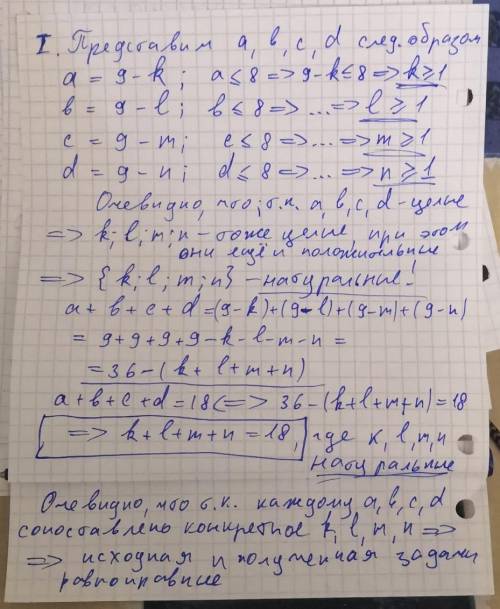 I. Представим a, b, c, d след. образом
a = 9 - k; a ≤ 8 => 9-k ≤ 8 => k ≥ 1
b = 9 - l; b ≤ 8 => ... => l ≥ 1
c = 9 - m; c ≤ 8 => ... => m ≥ 1
d = 9 - n; d ≤ 8 => ... => n ≥ 1
Очевидно, что, т.к. a, b, c, d - целые
=> k; l; m; n - тоже целые, при этом
они ещё и положительные
=> {k; l; m; n} - натуральные!
a + b + c + d = (9-k)+(9-l)+(9-m)+(9-n)
= 9+9+9+9-k-l-m-n =
= 36-(k+l+m+n)
a+b+c+d=18 <=> 36-(k+l+m+n)=18
=> k+l+m+n=18, где k, l, m, n
натуральные
Очевидно, что т.к. каждому a, b, c, d
сопоставлено конкретное k, l, m, n =>
=> исходная и полученная задачи
равноправные